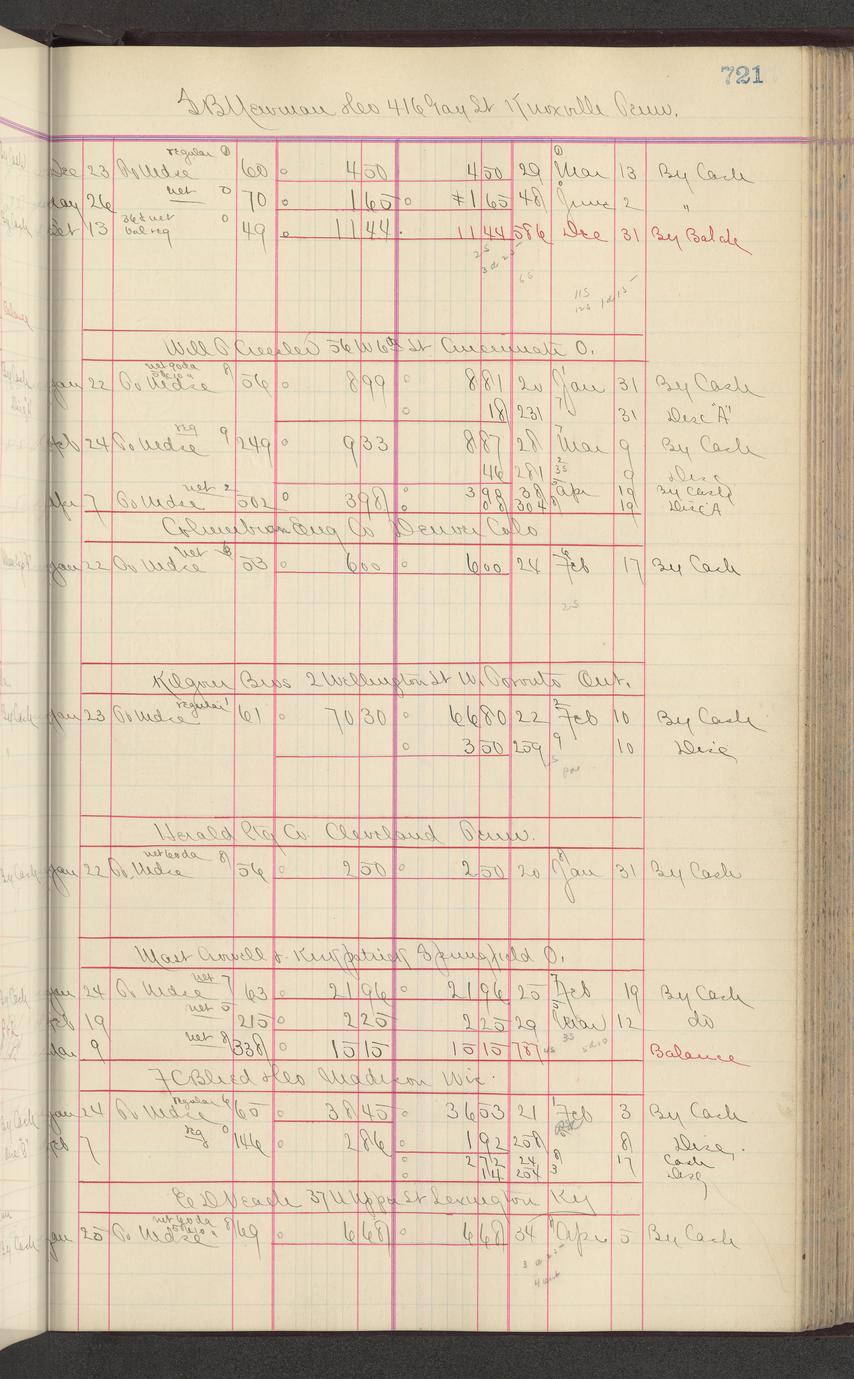 721
416 Gay St Knoxville Tenn.
23 To Mdse regular 60 450 450 29 Mar 13 By Cash
May 26 net 70 165 165 48 June 2 "
Oct 13 bal reg 49 1144 1144 586 Dec 31 By Balce
Will P 56 W 6th St Cincinnati O.
Jan 22 To Mdse 56 899 881 20 Jan 31 By Cash
18 231 31 Disc "A"
Feb 24 To Mdse reg 9 249 933 887 28 Mar 9 By Cash
46 281 9 Disc
7 To Mdse net 2 502 398 398 38 Apr 19 By Cash
304 19 Disc A
Columbian Eng Co Denver Colo
Jan 22 To Mdse net 53 600 600 24 Feb 17 By Cash
25
Kilgour Bros 2 Wellington St W. Toronto Ont.
Jan 23 To Mdse regular 61 7030 6680 22 Feb 10 By Cash
350 259 10 Disc
Herald Ptg Co. Cleveland Tenn.
Jan 22 To Mdse net 60 da 8 56 250 250 20 Jan 31 By Cash
Mast Crowell & Kirkpatrick Springfield O.
Jan 24 To Mdse net 7 63 2196 2196 25 Feb 19 By Cash
Feb 19 net 5 215 225 225 29 Mar 12 do
Mar 9 net 8 338 1515 1515 787 Balance
Madison Wis.
Jan 24 To Mdse regular 6 65 3845 3653 21 Feb 3 By Cash
Feb 7 reg 0 146 286 192 258 8 Disc.
272 24 17 Cash
14 254 3 Disc
E D Veach 37 N Upper St Lexington Ky
Jan 25 To Mdse net 60 da 8 69 668 668 34 Apr 5 By Cash